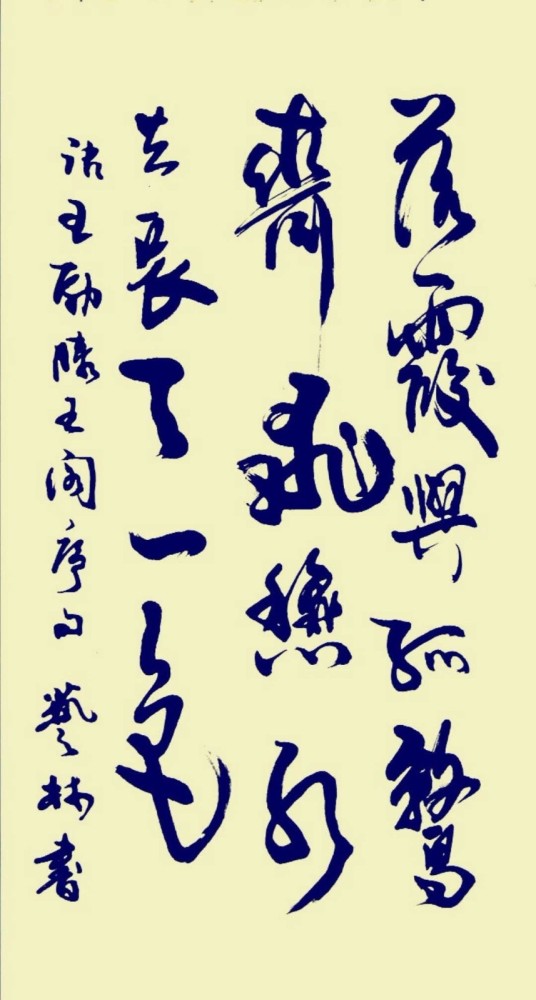 落霞與孤鶩
齊飛秋水
共長天一色
王勃滕王阁序句 藝林書